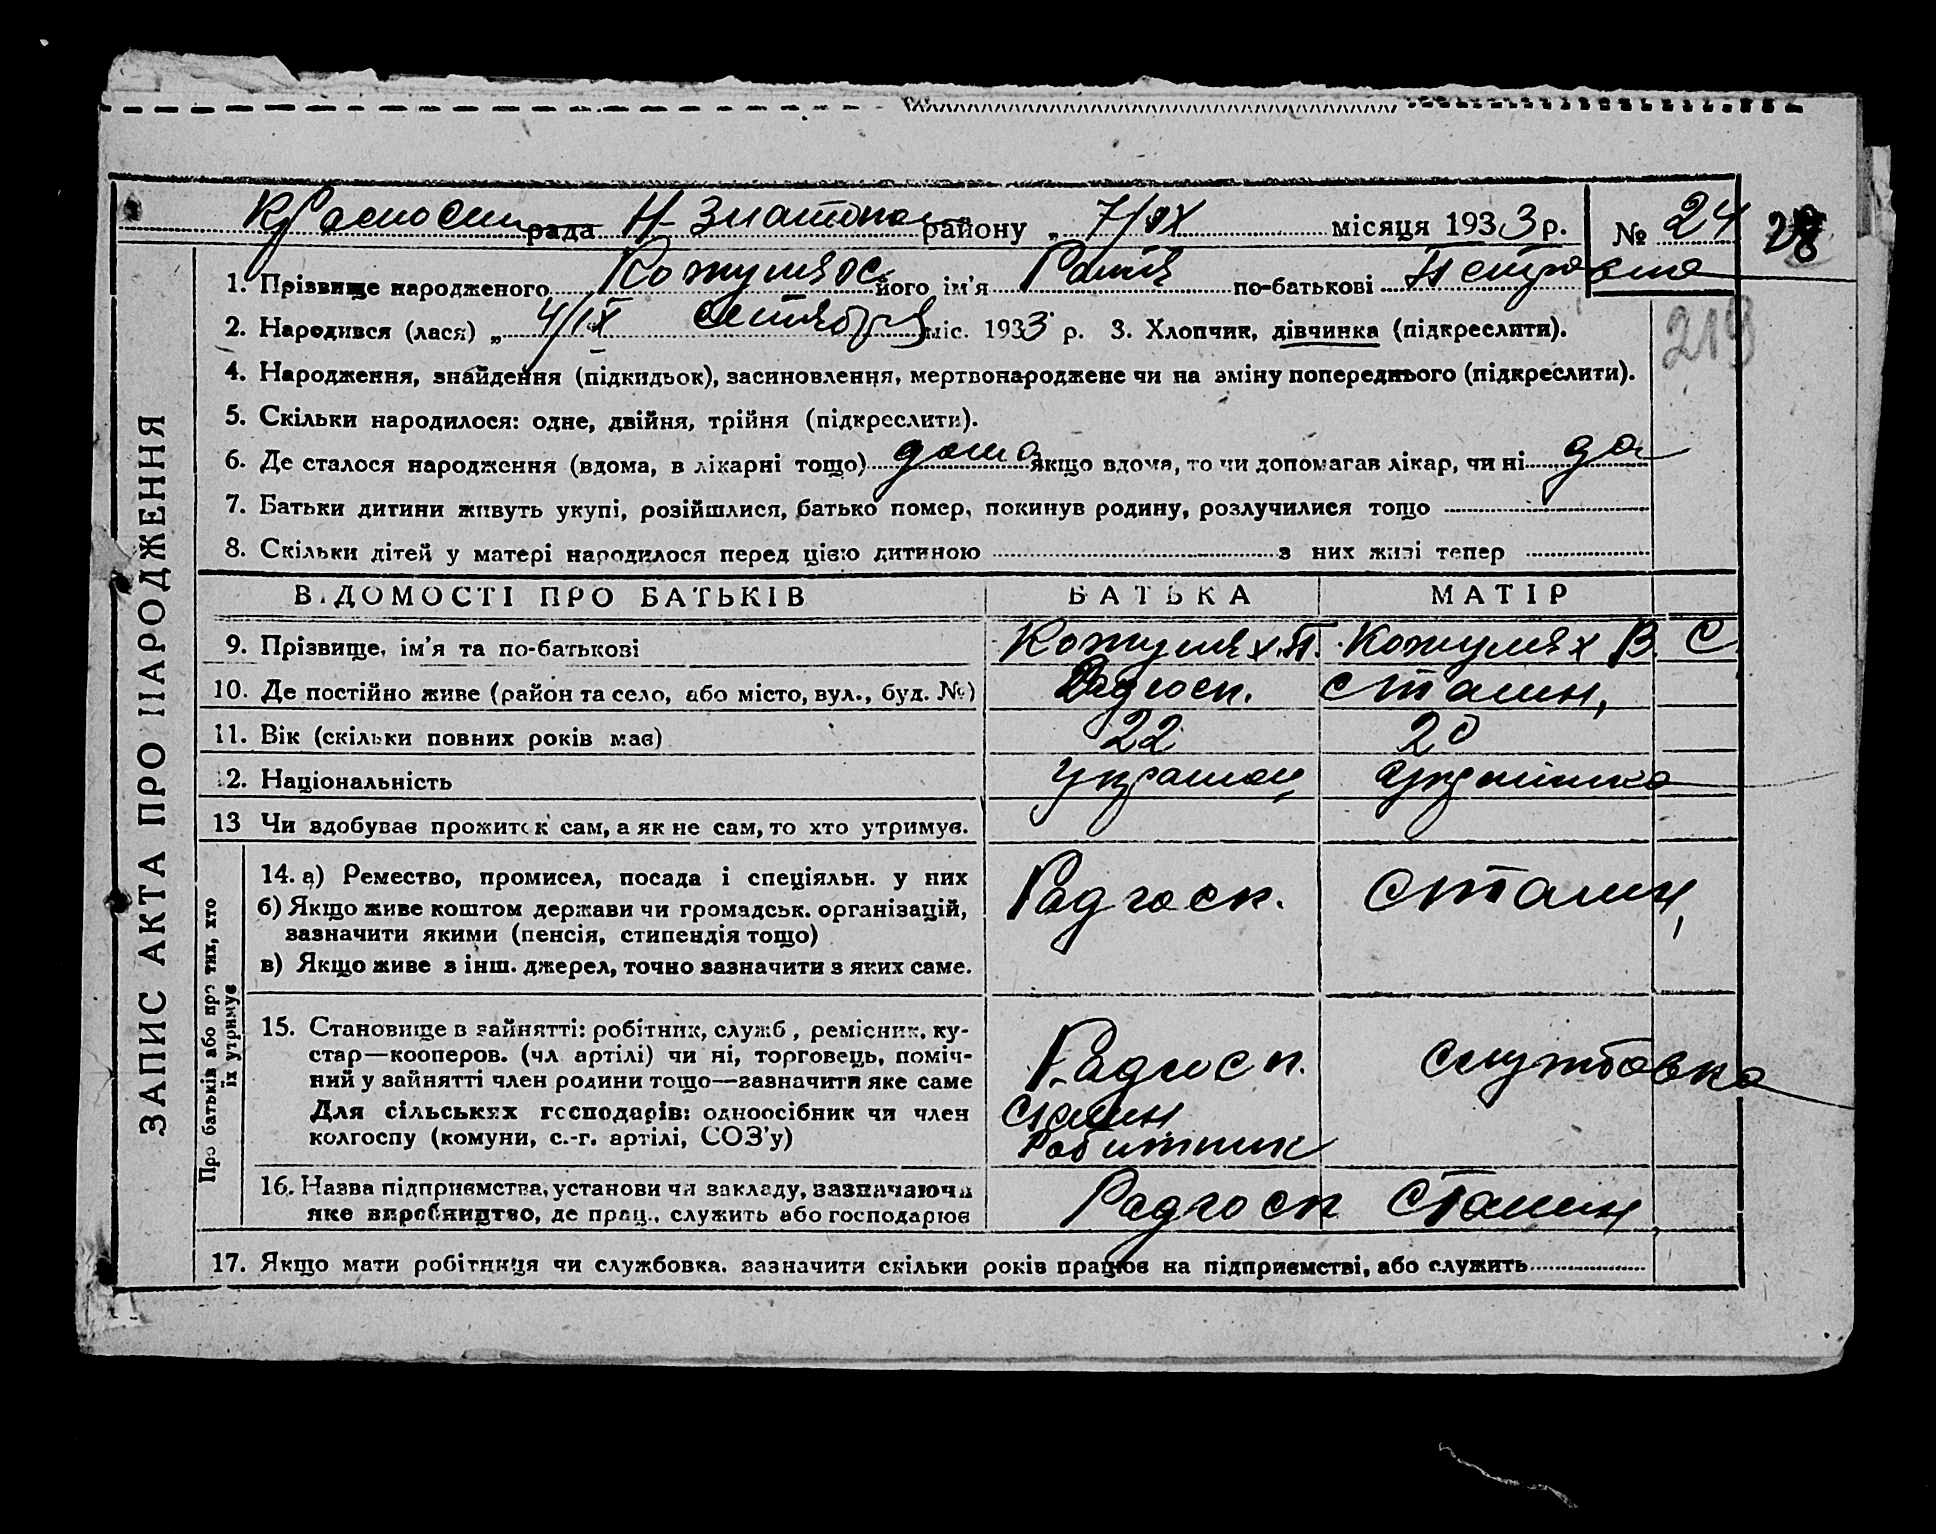 рада Н-Знаменка району „ 7/IX місяця 1933 р. № 24 28
1. Прізвище народженого його ім'я по-батькові Петровна
2. Народився (лася) „ 4/IX сентября міс. 1933 р. 3. Хлопчик, дівчинка (підкреслити).
219
4. Народження, знайдення (підкидьок), засиновлення, мертвонароджене чи на зміну попереднього (підкреслити).
5. Скільки народилося: одне, двійня, трійня (підкреслити).
6. Де сталося народження (вдома, в лікарні тощо) дома якщо вдома, то чи допомагав лікар, чи ні да
7. Батьки дитини живуть укупі, розійшлися, батько помер, покинув родину, розлучилися тощо
8. Скільки дітей у матері народилося перед цією дитиною з них живі тепер
ЗАПИС АКТА ПРО НАРОДЖЕННЯ
ВІДОМОСТІ ПРО БАТЬКІВ БАТЬКА МАТІР
9. Прізвище, ім'я та по-батькові Кожулях П. Кожулях В. С.
10. Де постійно живе (район та село, або місто, вул., буд. №) Радгосп. Сталин,
11. Вік (скільки повних років має) 22 20
12. Національність
13 Чи здобуває прожиток сам, а як не сам, то хто утримує.
Про батьків або про тих, хто
їх утримує
14. а) Ремество, промисел, посада і спеціяльн. у них
б) Якщо живе коштом держави чи громадськ. організацій,
зазначити якими (пенсія, стипендія тощо)
в) Якщо живе з інш. джерел, точно зазначити з яких саме.
Радгосп. Сталин,
15. Становище в зайнятті: робітник, служб, ремісник, ку-
стар—кооперов. (чл. артілі) чи ні, торговець, поміч-
ний у зайнятті член родини тощо—зазначити яке саме
Для сільських господарів: одноосібник чи член
колгоспу (комуни, с.-г. артілі, СОЗ'у)
Радгосп. службовка
Сталин
Робитник
16. Назва підприємства, установи чи закладу, зазначаючи
яке виробництво, де прац., служить або господарює
Радгосп Сталин
17. Якщо мати робітниця чи службовка, зазначити скільки років працює на підприємстві, або служить